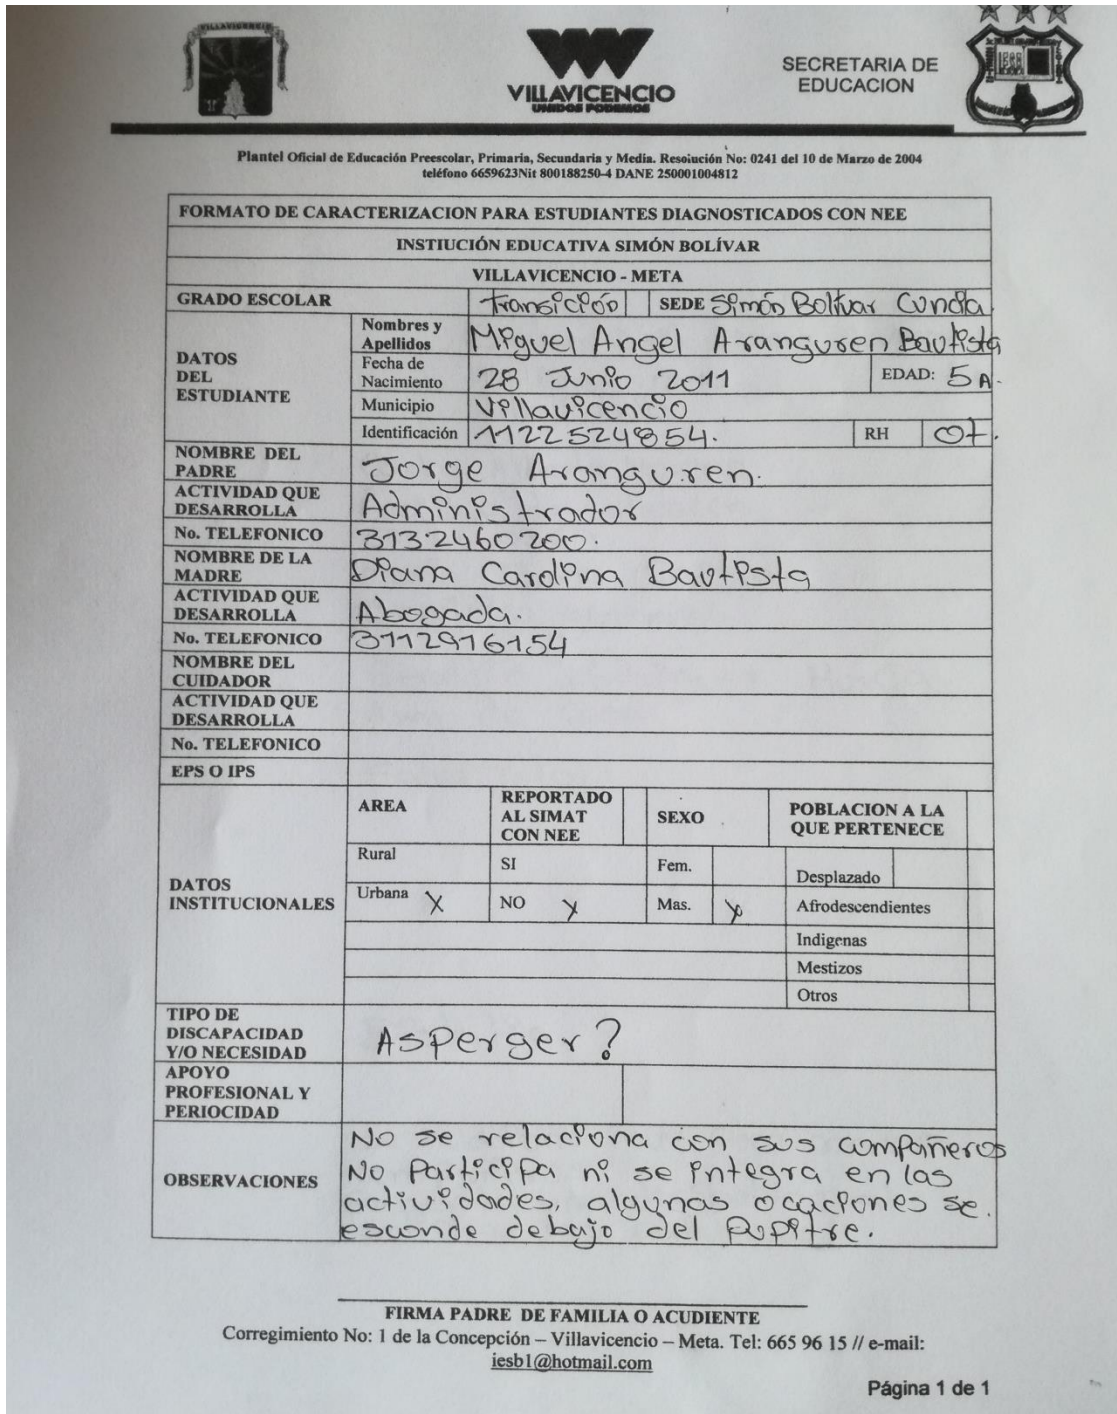 VILLAVICENCIO
VILLAVICENCIO
UNIDOS PODEMOS
SECRETARIA DE
EDUCACION
Plantel Oficial de Educación Preescolar, Primaria, Secundaria y Media. Resolución No: 0241 del 10 de Marzo de 2004
teléfono 6659623Nit 800188250-4 DANE 250001004812
FORMATO DE CARACTERIZACION PARA ESTUDIANTES DIAGNOSTICADOS CON NEE
INSTIUCIÓN EDUCATIVA SIMÓN BOLÍVAR
VILLAVICENCIO - META
GRADO ESCOLAR Transición SEDE Simón Bolívar Cundia
DATOS DEL ESTUDIANTE
Nombres y Apellidos Miguel Angel Aranguren Bautista
Fecha de Nacimiento 28 Junio 2011 EDAD: 5 A.
Municipio Villavicencio
Identificación 1122524854. RH O+.
NOMBRE DEL PADRE Jorge Aranguren.
ACTIVIDAD QUE DESARROLLA Administrador
No. TELEFONICO 3132460200.
NOMBRE DE LA MADRE Diana Carolina Bautista
ACTIVIDAD QUE DESARROLLA Abogada.
No. TELEFONICO 3112916154
NOMBRE DEL CUIDADOR
ACTIVIDAD QUE DESARROLLA
No. TELEFONICO
EPS O IPS
DATOS INSTITUCIONALES
AREA REPORTADO AL SIMAT CON NEE SEXO POBLACION A LA QUE PERTENECE
Rural SI Fem. Desplazado
Urbana X NO X Mas. X Afrodescendientes
Indigenas
Mestizos
Otros
TIPO DE DISCAPACIDAD Y/O NECESIDAD Asperger?
APOYO PROFESIONAL Y PERIOCIDAD
OBSERVACIONES
No se relaciona con sus compañeros
No participa ni se integra en las
actividades, algunas ocaciones se.
esconde debajo del pupitre.
FIRMA PADRE DE FAMILIA O ACUDIENTE
Corregimiento No: 1 de la Concepción – Villavicencio – Meta. Tel: 665 96 15 // e-mail:
iesb1@hotmail.com
Página 1 de 1